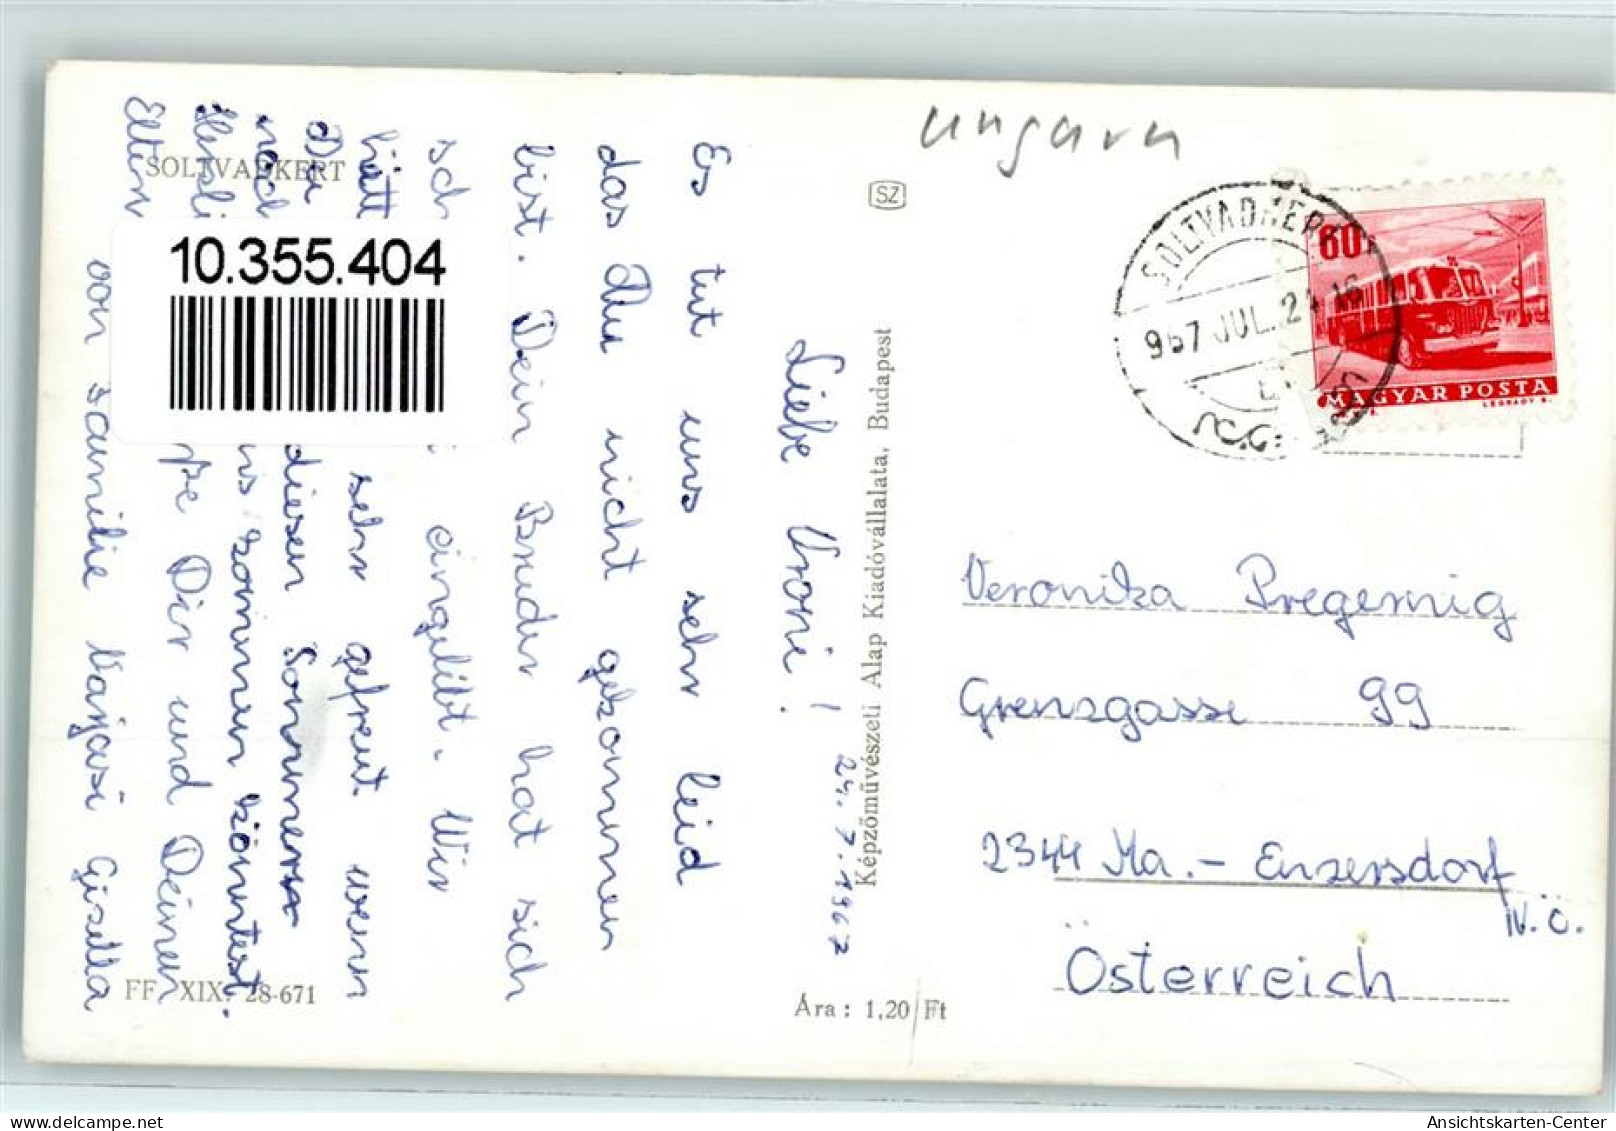 ungarn
SOLTVADKERT
10.355.404
SZ
SOLTVADKERT
967 JUL. 24 16
60f
MAGYAR POSTA
LÉGRÁDY S.
24. 7. 1967
Liebe Vroni!
Es tut uns sehr leid
das Du nicht gekommen
bist. Dein Bruder hat sich
sch eingelebt. Wir
hätt sehr gefreut wenn
Du diesen Sommer
noch uns kommen könntest.
Herzli Dir und Deinen
Eltern
von Familie Gisella
Képzőművészeti Alap Kiadóvállalata, Budapest
Veronika Pregernig
Grenzgasse 99
2344 Ma.- Enzersdorf
N.Ö.
Österreich
FF. XIX. 28-671
Ára: 1,20 Ft
Ansichtskarten-Center